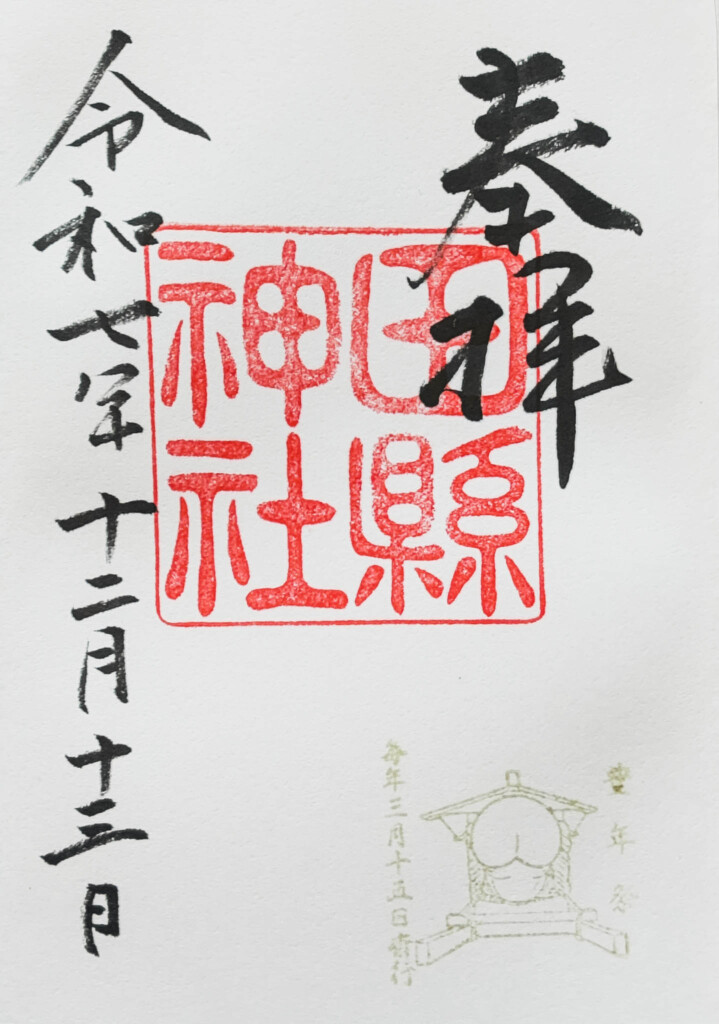 奉拝
田縣
神社
令和七年十二月十三日
豊年祭
毎年三月十五日斎行